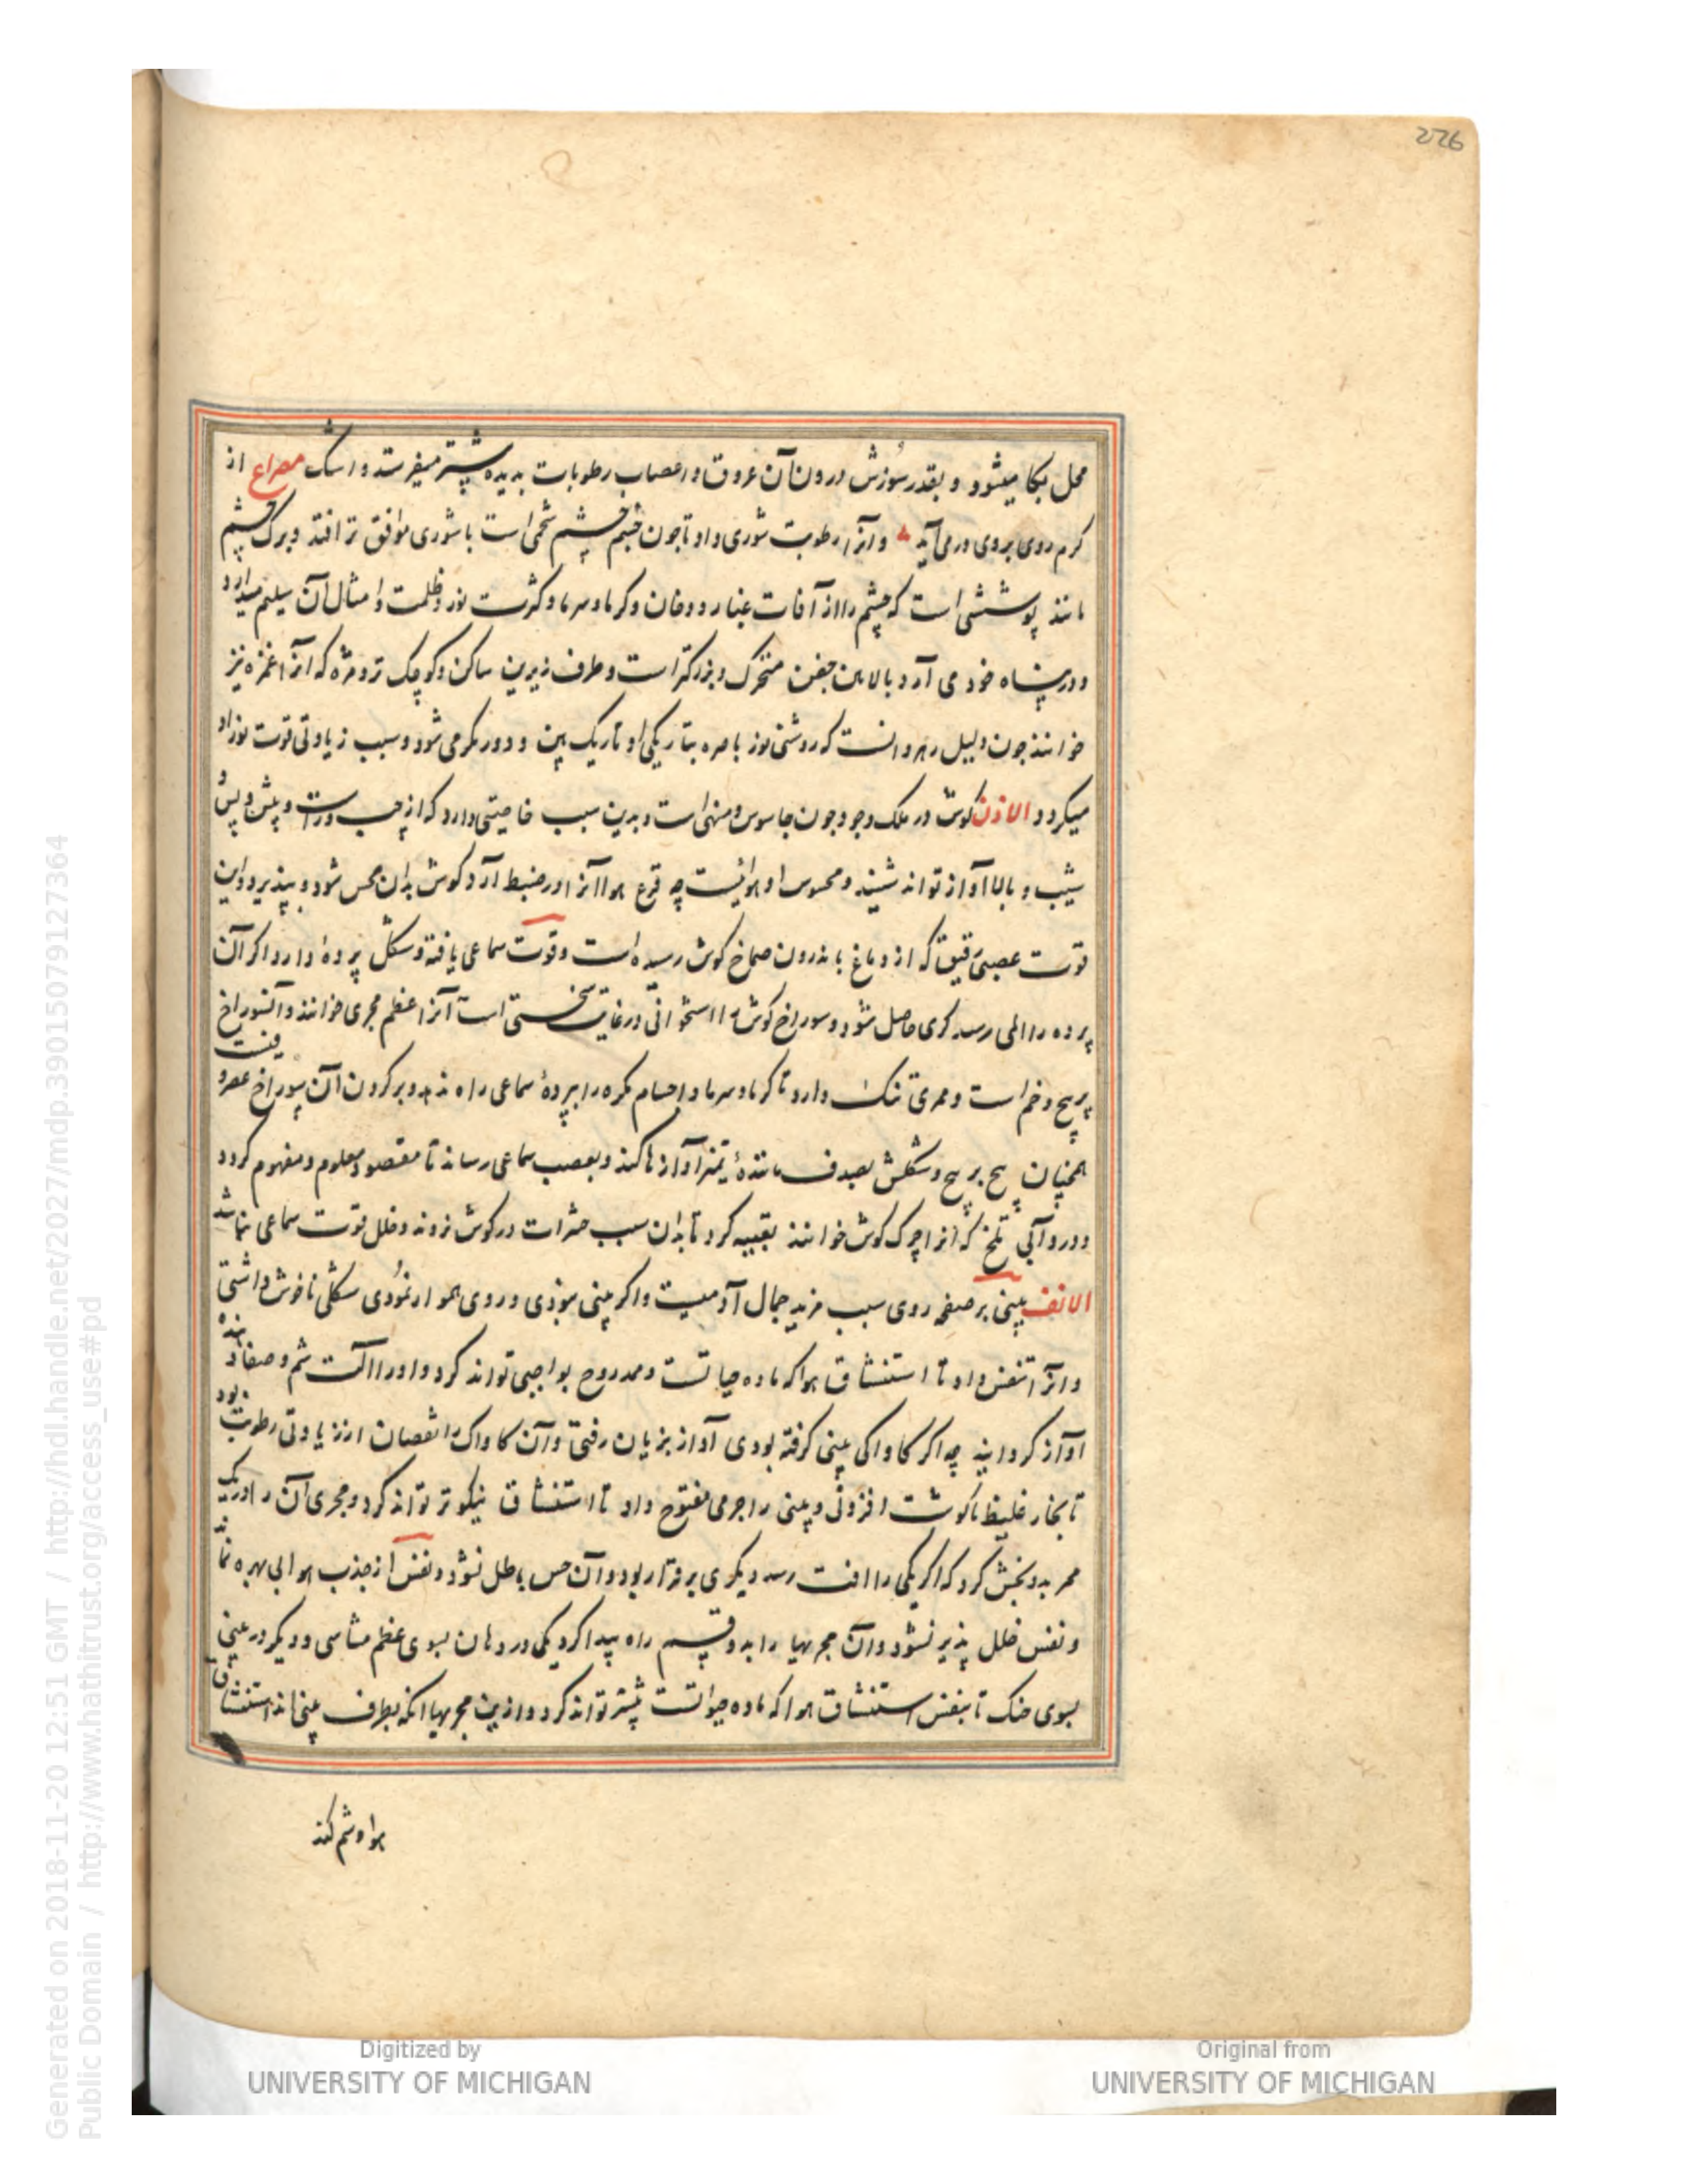 226
محل بکا میشود و بقدر سوزش درون آن عروق و اعصاب رطوبات بدیده بیشتر میفرستد و اشک مصراع از
کرم روی بروی در می آید و آنرا رطوبت شوری داد تا چون جسم چشم شحمی است با شوری موافق تر افتد و برک چشم
مانند پوششی است که چشم را از آفات غبار و دخان و کرما و سرما و کثرت نور و ظلمت و امثال آن سلیم میدارد
و در پناه خود می آرد بالایین جفن متحرک و بزرکتر است و طرف زیرین ساکن و کوچک تر و مژه که آنرا غمزه نیز
خوانند چون دلیل رهروانست که روشنی نور باصره بتاریکی او تاریک بین و دور نکر می شود و سبب زیادتی قوت نور او
میکردد الاذن کوش در ملک وجود چون جاسوس و منهی است و بدین سبب خاصیتی دارد که از چپ و راست و پیش و پس و
شیب و بالا آواز تواند شنید و محسوس او هوائیست چه قرع هوا آنرا در ضبط آرد و کوش بدان محس شود و بپذیرد و این
قوت عصبی رقیق که از دماغ باندرون صماخ کوش رسیده است و قوت سماعی یافته و شکل پرده دارد اکر آن
پرده را المی رسد کری حاصل شود و سوراخ کوش را استخوانی در غایت سختی است آنرا اعظم مجری خوانند و آنسوراخ
پر پیچ و خم است و ممری تنک دارد تا کرما و سرما و اجسام مکره را بپردهٔ سماعی راه ندهد و بر کرد آن سوراخ غضروفیست
همچنان پیچ بر پیچ و شکلش بصدف مانندهٔ تمیز آوازها کند و بعصب سماعی رساند تا مقصود معلوم و مفهوم کردد
و در و آبی تلخ که آنرا چرک کوش خوانند تعبیه کرد تا بدان سبب حشرات در کوش نروند و خلل قوت سماعی نباشد
الانف بینی بر صفحه روی سبب مزید جمال آدمیست و اکر بینی نبودی و روی هموار نمودی شکلی ناخوش داشتی
و آنرا تنفس داد تا استنشاق هوا که ماده حیاتست و ممد روح بواجبی تواند کرد و او را آلت شم و صفا دهنده
آواز کردانید چه اکر کاواکی بینی کرفته بودی آواز بزیان رفتی و آن کاواک را نقصان از زیادتی رطوبت بود
تا بخار غلیظ یا کوشت افزونی و بینی را جرمی مفتوح داد تا استنشاق نیکوتر تواند کرد و مجری آن را در یک
ممر بدو بخش کرد که اکر یکی را آفت رسد دیکری برقرار بود و آن حس باطل نشود و نفس از جذب هوا بی بهره نماند
و نفس خلل پذیر نشود و آن مجریها را بدو قسم راه پیدا کرد یکی در دهان بسوی عظم مشاشی و دیکر در بینی
بسوی حنک تا بنفس استنشاق هوا که ماده حیواتست بیشتر تواند کرد و ازین مجریها آنکه بطرف بینی اند استنشاق
هوا و شم کند
Generated on 2018-11-20 12:51 GMT / http://hdl.handle.net/2027/mdp.39015079127364
Public Domain / http://www.hathitrust.org/access_use#pd
Digitized by
UNIVERSITY OF MICHIGAN
Original from
UNIVERSITY OF MICHIGAN